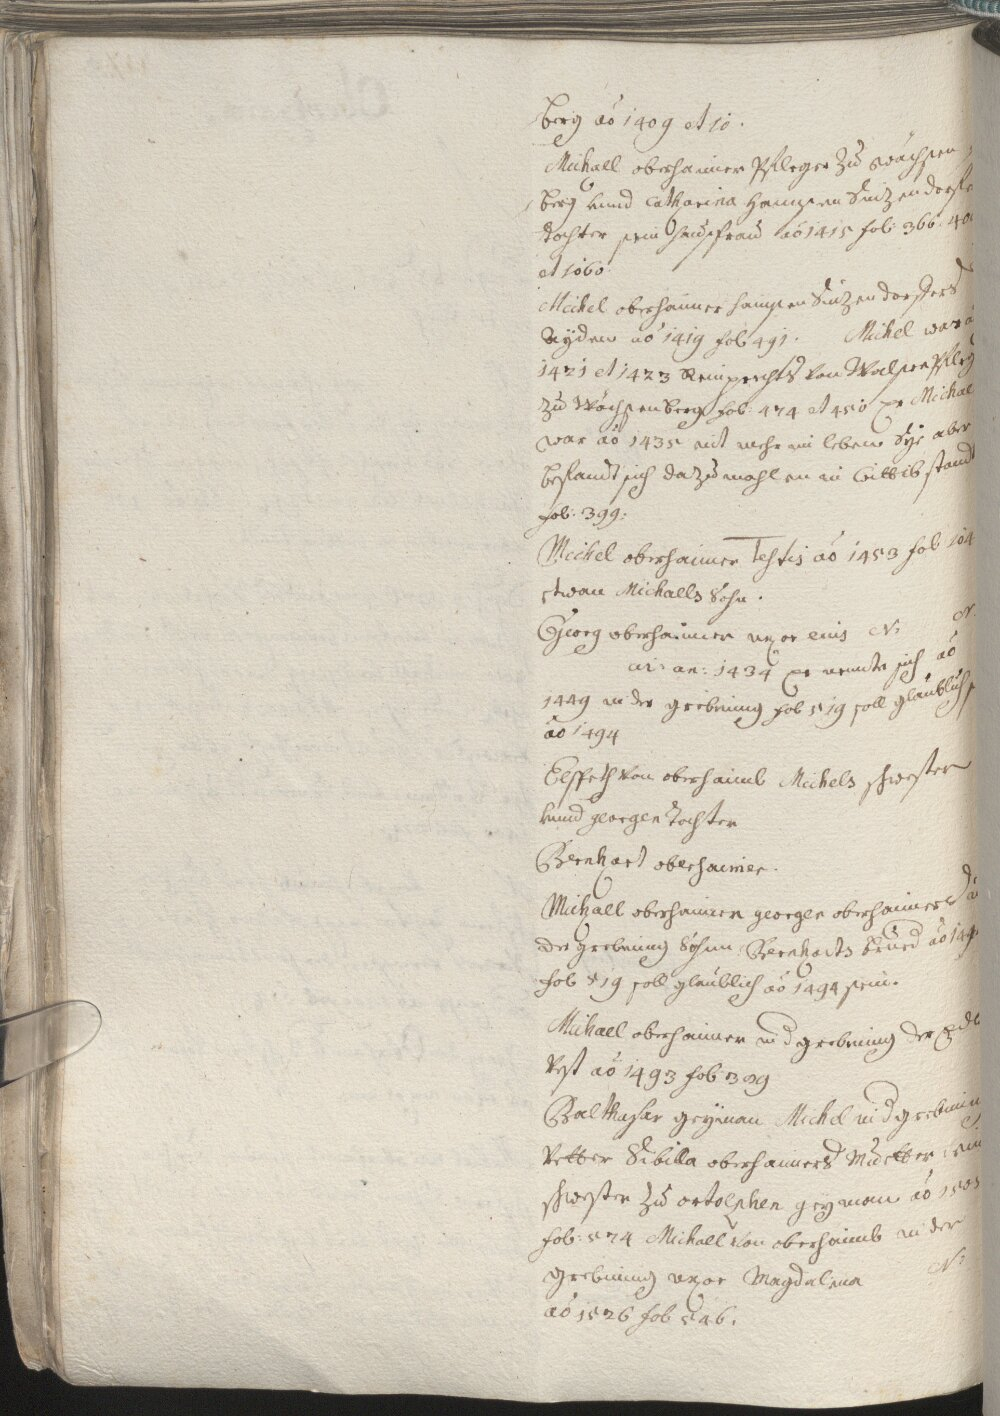 berg aō 1409 et 10.
Michael oberhaimer Pfleger Zu Wächsen
berg vnnd Catharina Hannsen Sinzendorffe
tochter sein Hausfrau aō 1415 fol: 366. 40
et 1060.
Michel oberhaimer hannsen Sinzendorffers
Aÿden aō 1419 fol: 491. Michel war a
1421 et 1423 Reinprechts von Walsee Pfleg
zu Wächsenberg fol: 474 et 450 er Michael
war aō 1435 nit mehr im leben Sÿe aber
befandt sich dazumahlen in wittibstandt
fol: 399.
Michel oberhaimer Testis aō 1453 fol 104
etwan Michaells Sohn.
Georg oberhaimer uxor eius N: N.
an: 1434 er nennte sich aō
1449 in der grebning fol 519 soll glaublich s
aō 1494
Elspeth von oberhaimb Michels schwester
vnnd georgen tochter
Bernhart oberhaimer.
Michaell oberhaimer georgen oberhaimers
der grebning Sohn Bernharts brued aō 149
fol 519 soll glaublich aō 1494 sein.
Michael oberhaimer in d grebning der Edl
Vest aō 1493 fol: 309
Balthasar geÿman Michel in d grebnin
Vetter Sibilla oberhaimers Muetter sein
schwester zu ortolphen geÿman aō 1505
fol: 574 Michaell von oberhaimb in der
grebning uxor Magdalena N:
aō 1526 fol 546.